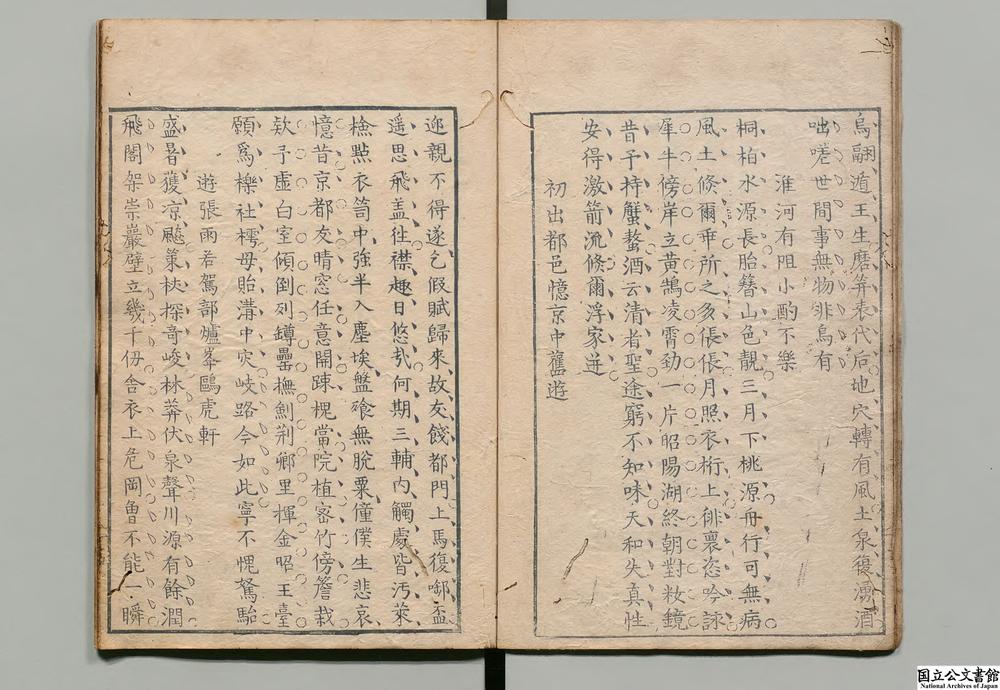 烏翩遁王生磨笄表代后地穴轉有風土泉復湧酒
咄嗟世間事無物非烏有
淮河有阻小酌不樂
桐柏水源長胎簪山色靚三月下桃源舟行可無病
風土倐爾乖所之多倀倀月照衣桁上徘褱恣吟詠
犀牛傍岸立黃鵠凌霄勁一片昭陽湖終朝對妝鏡
昔予持蟹螯酒云清者聖途窮不知味天和失真性
安得激箭流倐爾浮家迸
初出都邑憶京中舊遊
迎親不得遂乞假賦歸來故友餞都門上馬復啣盃
遥思飛盖徃襟趣日悠哉何期三輔内觸處皆汚萊
檢點衣笥中強半入塵埃盤飱無脫粟僮僕生悲哀
憶昔京都友晴窓任意開踈槐當院植宻竹傍簷栽
欵予虛白室傾倒列罇罍撫劍荆卿里揮金昭王臺
願爲櫟社樗毋貽溝中灾岐路今如此寧不愧駑駘
遊張雨若駕部爐峯鷗虎軒
盛暑獲凉飈策杖探奇峻林莽伏泉聲川源有餘潤
飛閣架崇巖壁立幾千仞舍衣上危岡曾不能一瞬
国立公文書館
National Archives of Japan